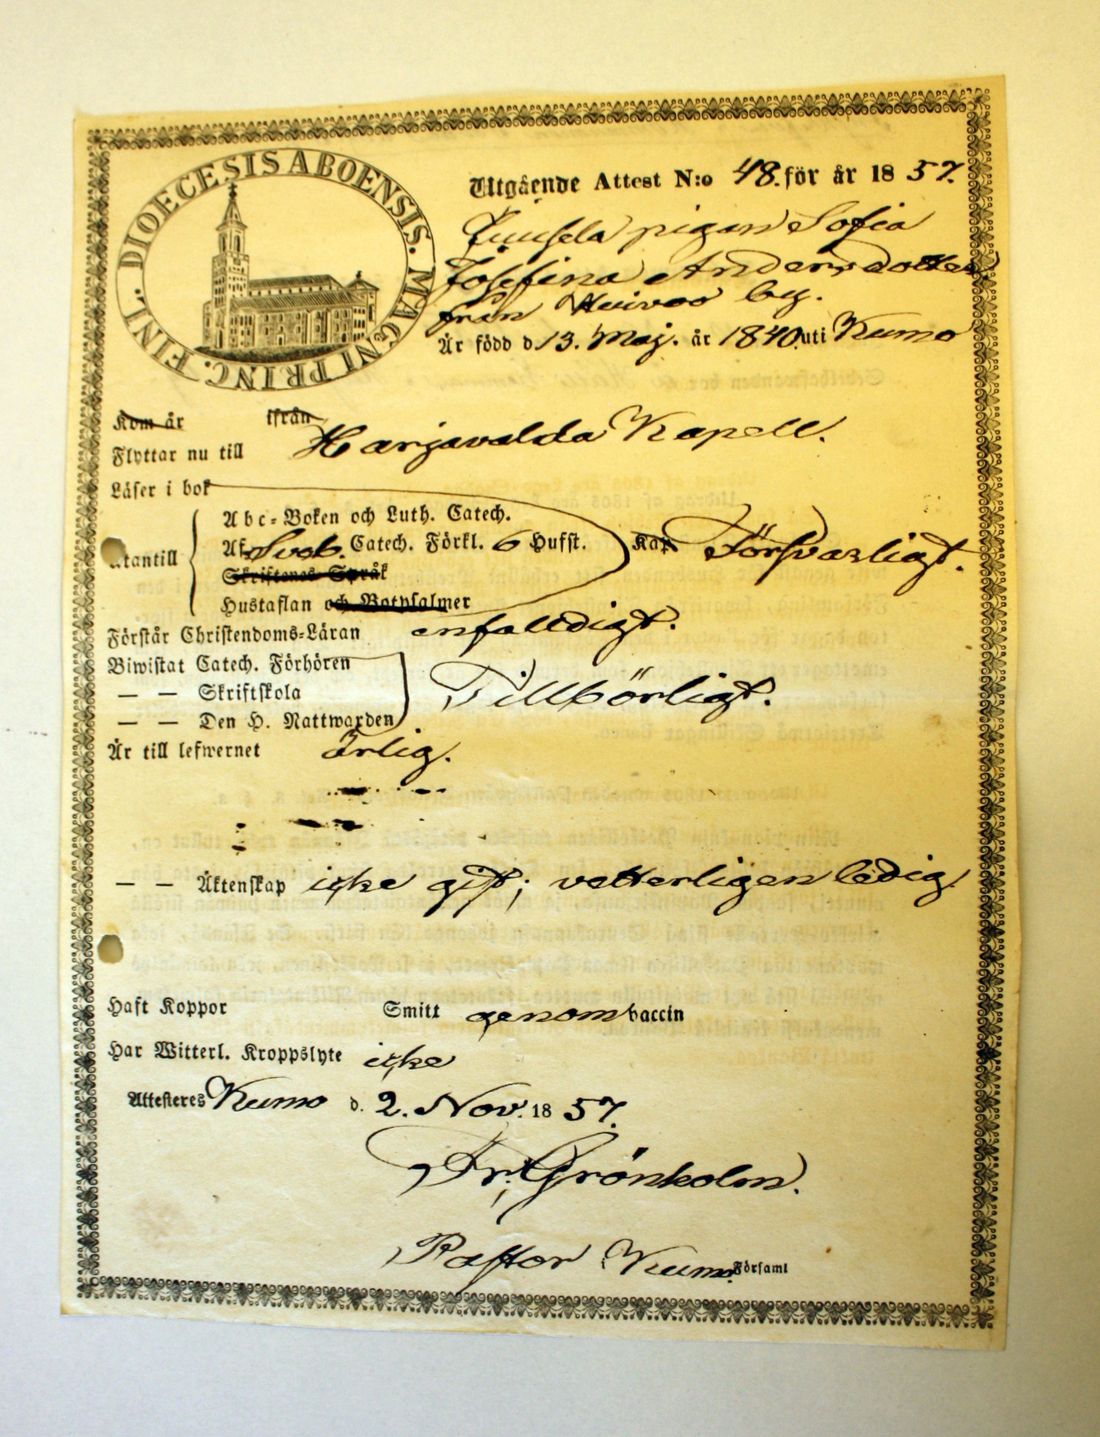 DIOECESIS ABOENSIS. MAGNI PRINC. FINL.
Utgående Attest N:o 48. för år 1857.
Juusela pigan Sofia
Josefina Andersdotter
från Kuivas by.
Är född d 13. Maj. år 1840 uti Kumo
Kom år ifrån
Flyttar nu till Harjavalda Kapell.
Läser i bok
Abc-Boken och Luth. Catech.
Utantill Af Sveb. Catech. Förkl. 6 Hufst. Kap Försvarligt.
Skriftenes Språk
Hustaflan och Botpsalmer
Förstår Christendoms-Läran enfalldigt.
Biwistat Catech. Förhören
— — Skriftskola Tillbörligt.
— — Den H. Nattwarden
Är till lefwernet Ärlig.
— — Äktenskap icke gift; vetterligen ledig.
Haft Koppor Smitt genom vaccin
Har Witterl. Kroppslyte icke
Attesteras Kumo d. 2. Nov. 1857.
Fr. Grönholm.
Pastor Kumo Församl